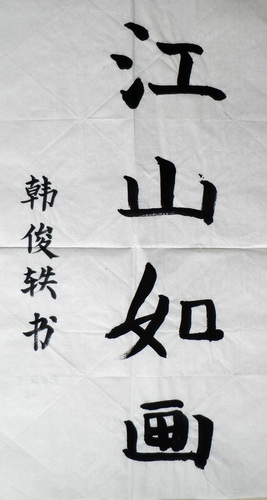 江山如画
韩俊轶书